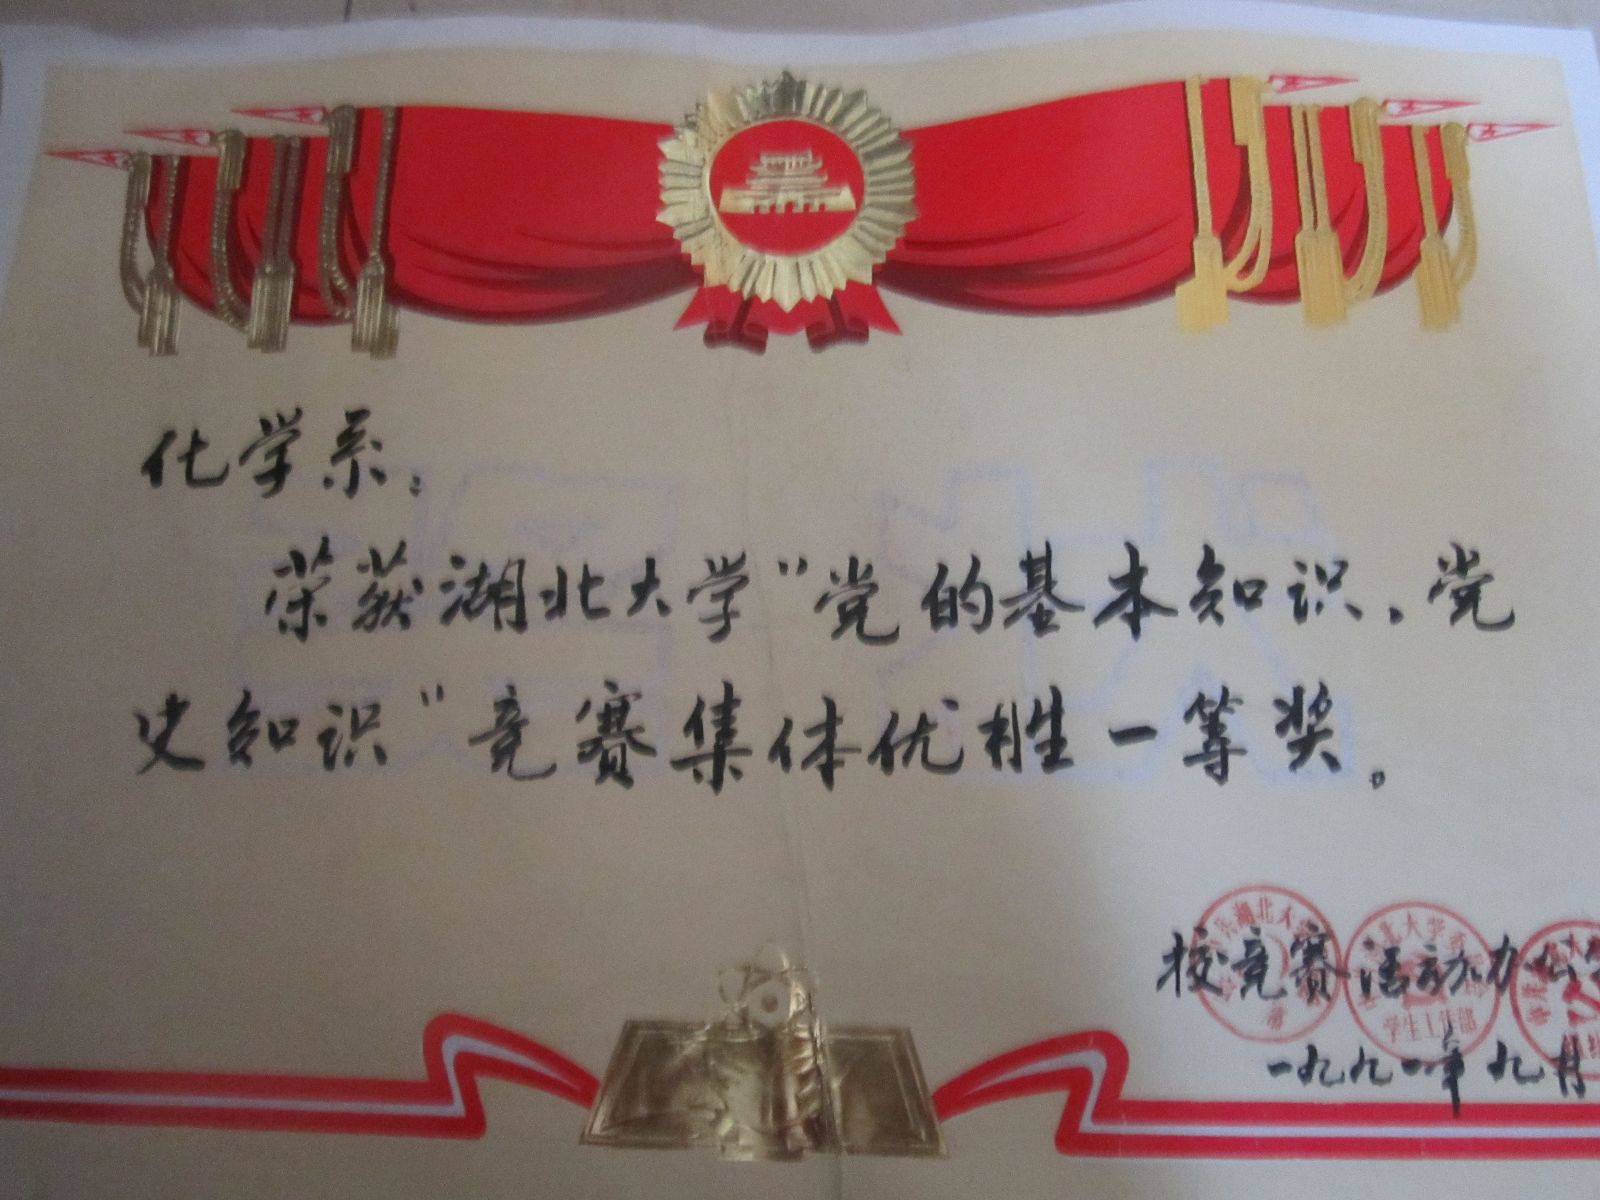 化学系：
荣获湖北大学"党的基本知识、党
史知识"竞赛集体优胜一等奖。
校竞赛活动办公
一九九一年九月
学生工作部